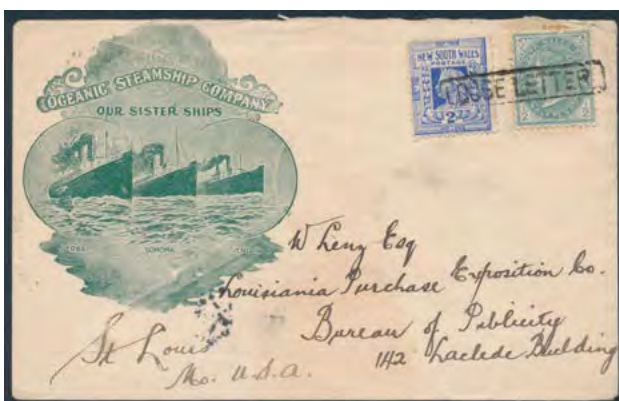 OCEANIC STEAMSHIP COMPANY
OUR SISTER SHIPS
SONOMA
NEW SOUTH WALES
POSTAGE
2
LOOSE LETTER
1/2 1/2
W Lenz Esq
Louisiania Purchase Exposition Co.
Bureau of Publicity
1142 Laclede Building
St Louis
Mo. U.S.A.